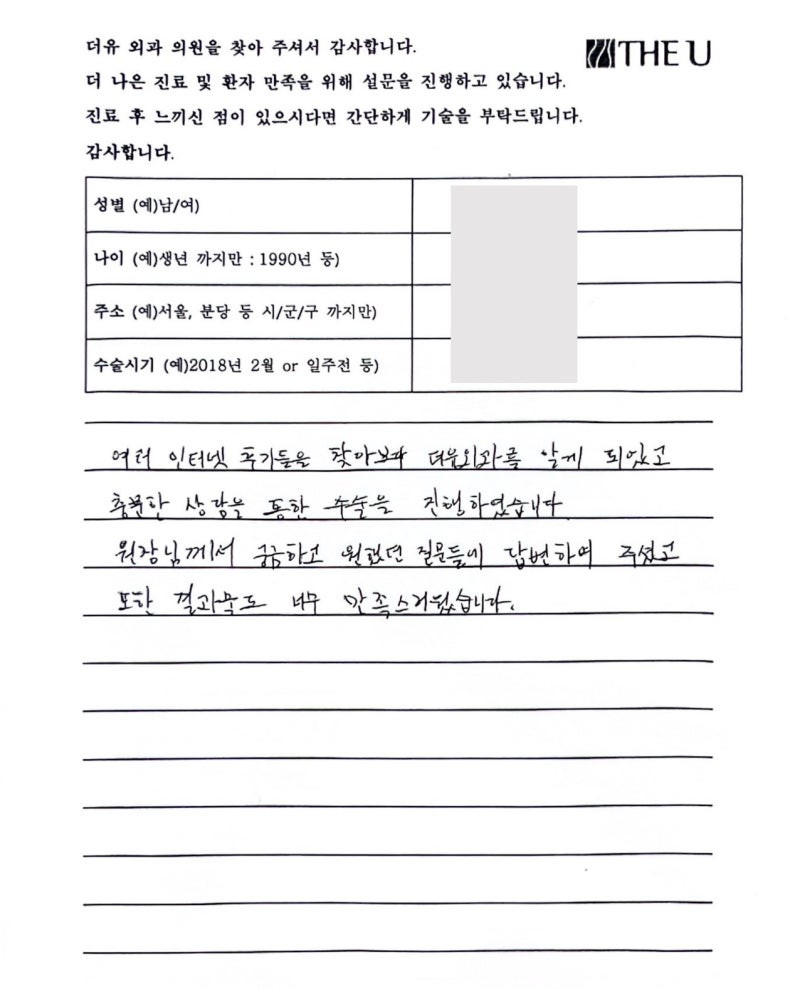 더유 외과 의원을 찾아 주셔서 감사합니다.
THE U
더 나은 진료 및 환자 만족을 위해 설문을 진행하고 있습니다.
진료 후 느끼신 점이 있으시다면 간단하게 기술을 부탁드립니다.
감사합니다.
성별 (예)남/여)
나이 (예)생년 까지만 : 1990년 등)
주소 (예)서울, 분당 등 시/군/구 까지만)
수술시기 (예)2018년 2월 or 일주전 등)
여러 인터넷 후기들을 찾아보다 알게 되었고
충분한 상담을 통한 수술을 진행하였습니다
원장님께서 궁금하고 원했던 질문들에 답변하여 주셨고
또한 너무 만족스러웠습니다.